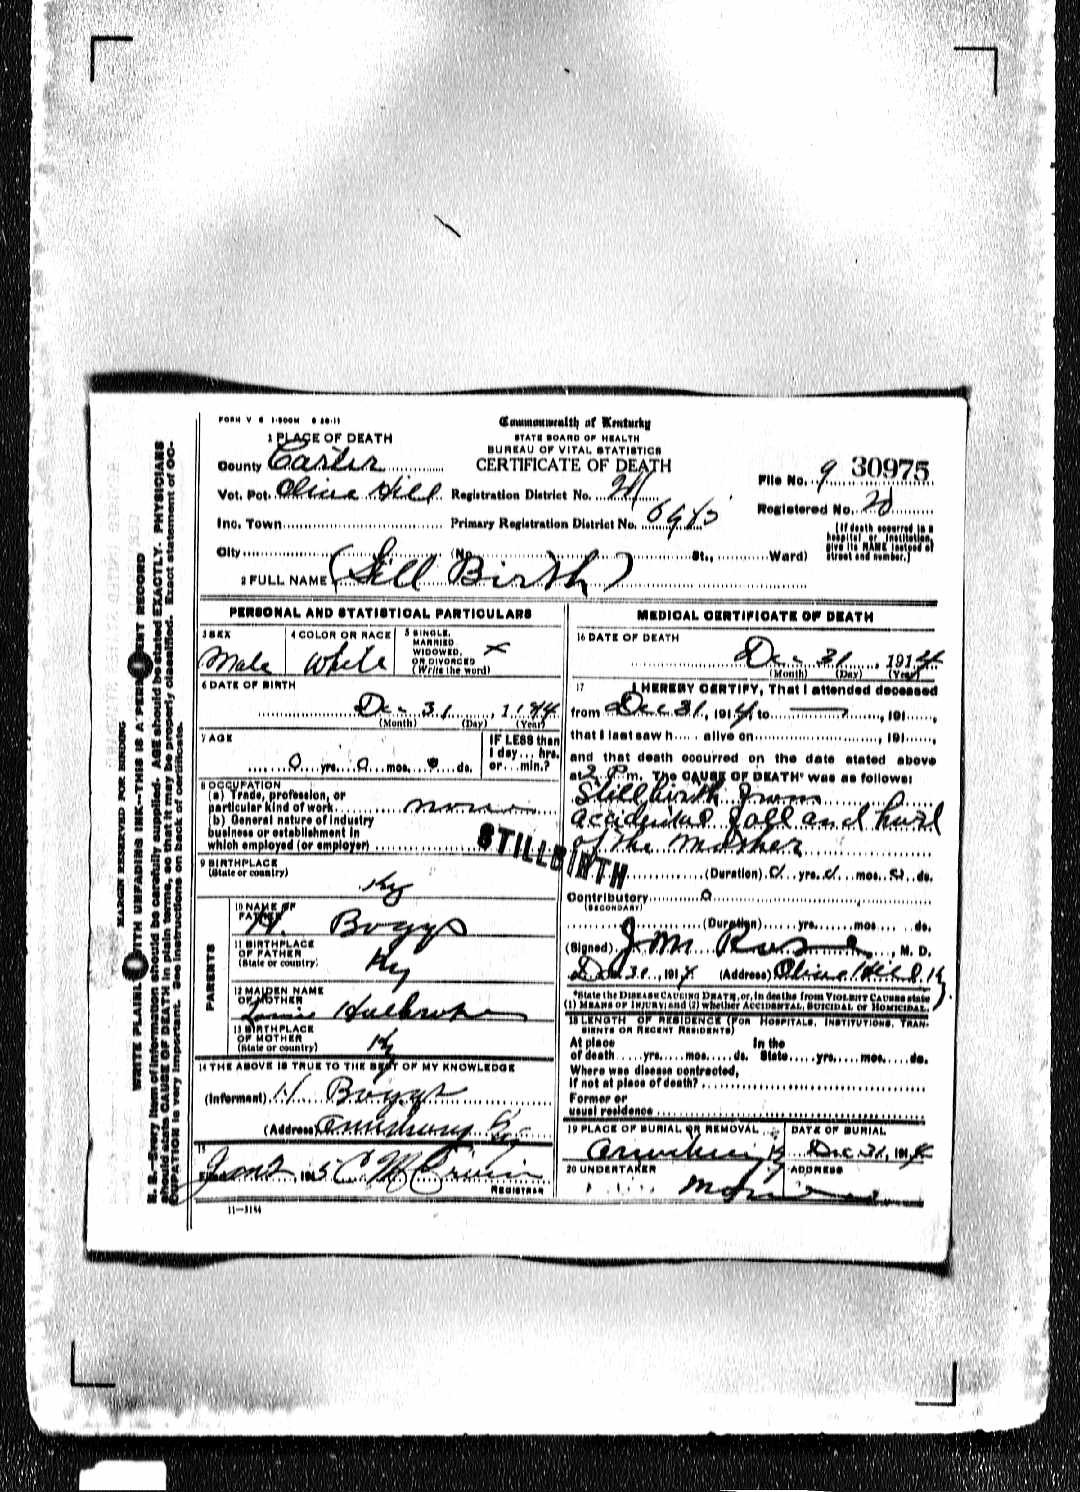 FORM V S 1-500M 6 20-11
Commonwealth of Kentucky
STATE BOARD OF HEALTH
BUREAU OF VITAL STATISTICS
CERTIFICATE OF DEATH
1 PLACE OF DEATH
County Carter
Vot. Pct. Olive Hill Registration District No.
Inc. Town Primary Registration District No.
City (No. St., Ward)
File No. 9 30975
Registered No.
(If death occurred in a
hospital or institution,
give its NAME instead of
street and number.)
2 FULL NAME (Still Birth)
PERSONAL AND STATISTICAL PARTICULARS
3 SEX
Male
4 COLOR OR RACE
White
5 SINGLE,
MARRIED
WIDOWED,
OR DIVORCED
(Write the word)
x
6 DATE OF BIRTH
Dec 31, 1914
(Month) (Day) (Year)
7 AGE
0 yrs. 0 mos. 0 ds.
IF LESS than
1 day... hrs.
or... min.?
8 OCCUPATION
(a) Trade, profession, or
particular kind of work none
(b) General nature of industry
business or establishment in
which employed (or employer)
STILLBIRTH
9 BIRTHPLACE
(State or country)
Ky
PARENTS
10 NAME OF
FATHER
H. Boggs
11 BIRTHPLACE
OF FATHER
(State or country)
Ky
12 MAIDEN NAME
OF MOTHER
13 BIRTHPLACE
OF MOTHER
(State or country)
Ky
14 THE ABOVE IS TRUE TO THE BEST OF MY KNOWLEDGE
(Informant) H Boggs
(Address)
15
Jan 2, 1915
REGISTRAR
11-3184
MEDICAL CERTIFICATE OF DEATH
16 DATE OF DEATH
Dec 31, 1914
(Month) (Day) (Year)
17 I HEREBY CERTIFY, That I attended deceased
from Dec 31, 1914, to , 191
that I last saw h alive on , 191
and that death occurred on the date stated above
at 2 P. m. The CAUSE OF DEATH* was as follows:
Stillbirth from
accidental fall and hurt
of the Mother
(Duration) 0 yrs. 0 mos. 0 ds.
Contributory 0
(SECONDARY)
(Duration) yrs. mos. ds.
(Signed) J M Rose, M. D.
Dec 31, 1914 (Address) Olive Hill Ky
*State the DISEASE CAUSING DEATH, or, in deaths from VIOLENT CAUSES state
(1) MEANS OF INJURY; and (2) whether ACCIDENTAL, SUICIDAL or HOMICIDAL.
18 LENGTH OF RESIDENCE (FOR HOSPITALS, INSTITUTIONS, TRAN-
SIENTS OR RECENT RESIDENTS)
At place In the
of death yrs. mos. ds. State yrs. mos. ds.
Where was disease contracted,
if not at place of death?
Former or
usual residence
19 PLACE OF BURIAL OR REMOVAL
DATE OF BURIAL
Dec 31, 1914
20 UNDERTAKER
ADDRESS
MARGIN RESERVED FOR BINDING
WRITE PLAINLY WITH UNFADING INK--THIS IS A PERMANENT RECORD
N. B.--Every item of information should be carefully supplied. AGE should be stated EXACTLY. PHYSICIANS
should state CAUSE OF DEATH in plain terms, so that it may be properly classified. Exact statement of OC-
CUPATION is very important. See instructions on back of certificate.